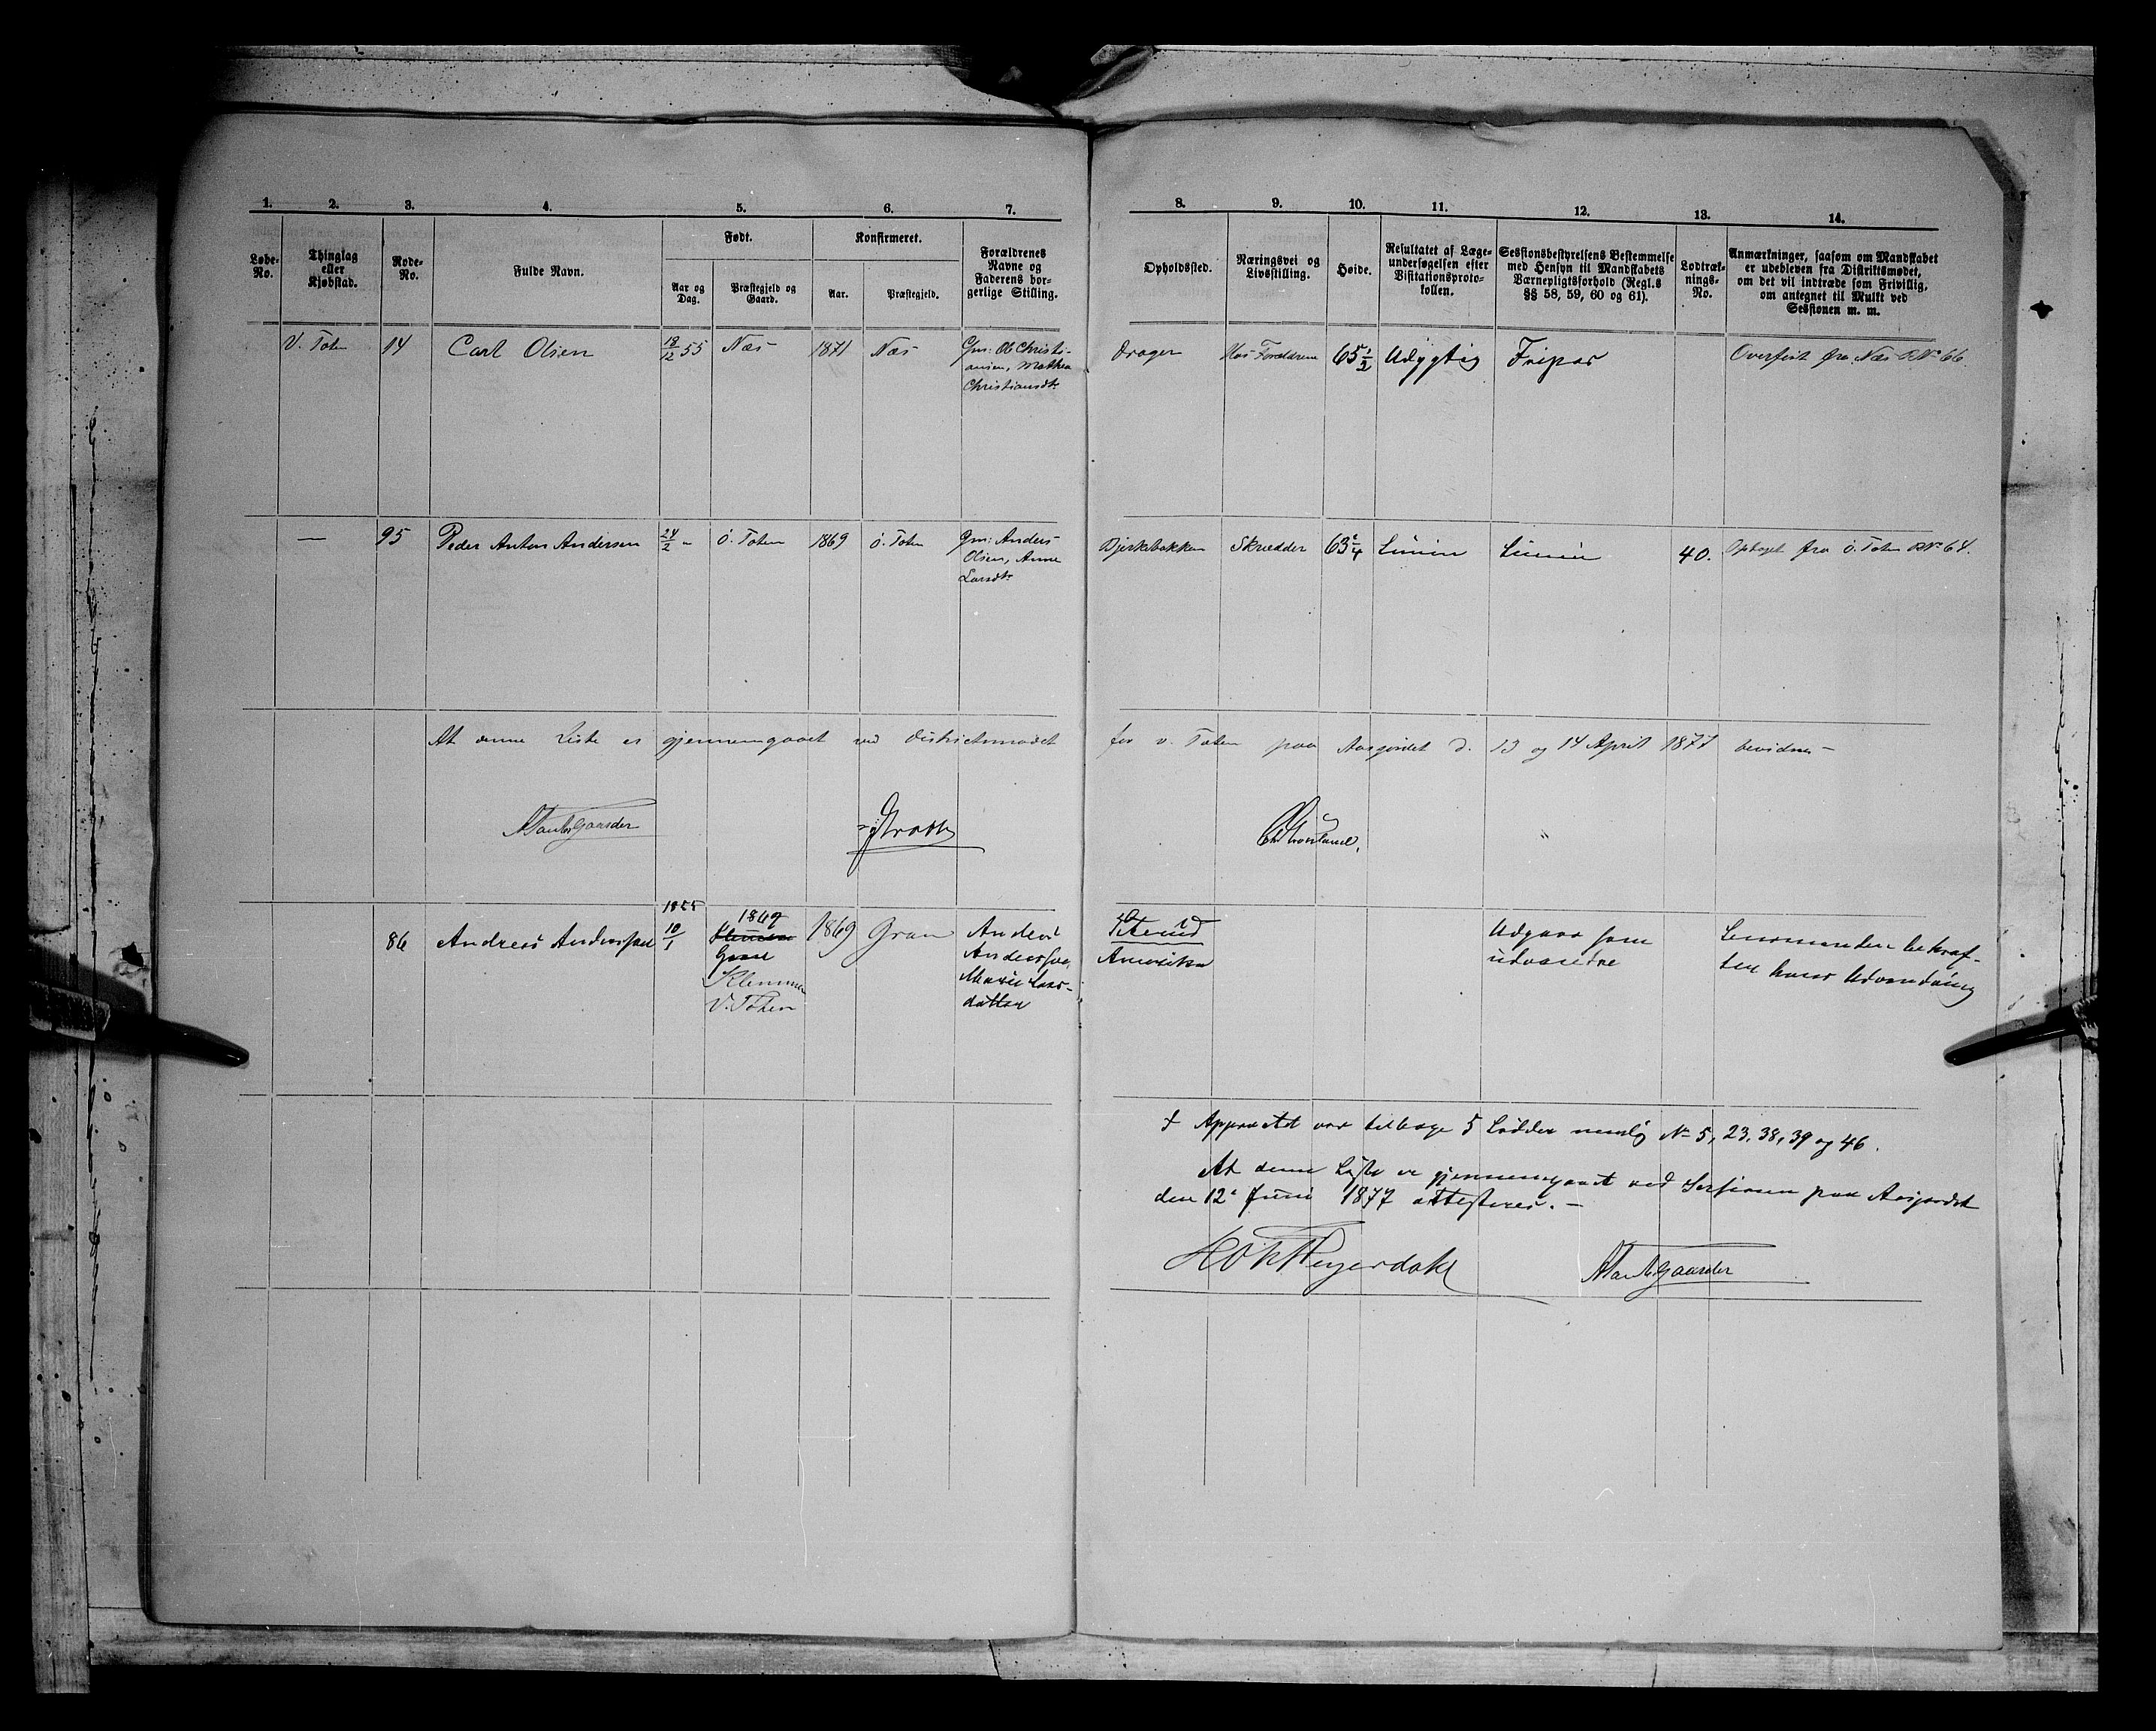 1. 2. 3. 4. 5. 6. 7.
Løbe-No. Thinglag eller Kjøbstad. Rode-No. Fulde Navn. Født. Aar og Dag. Præstegjeld og Gaard. Konfirmeret. Aar. Præstegjeld. Forældrenes Navne og Faderens borgerlige Stilling.
8. 9. 10. 11. 12. 13. 14.
Opholdssted. Næringsvei og Livsstilling. Høide. Resultatet af Læge-undersøgelsen efter Visitationsproto-kollen. Sessionsbestyrelsens Bestemmelse med Hensyn til Mandskabets Værnepligtsforhold (Regl.s §§ 58, 59, 60 og 61). Lodtræk-nings-No. Anmærkninger, saasom om Mandskabet er udebleven fra Distriktsmødet, om det vil indtræde som Frivillig, om antegnet til Mulkt ved Sessionen m. m.
V. Toten 14 Carl Olsen 18/12 55 Næs 1871 Næs Gm: Ole Christi-
ansen, Mathea
Christiansdtr
Drager Hos Forældrene 65 1/2 Udygtig Fripas Overført fra Næs RNo 66.
— 95 Peder Anton Andersen 24/2 " Ö. Toten 1869 Ö. Toten Gm: Anders
Olsen, Anne
Larsdtr
Bjerkebakken Skrædder 63 1/4 Linien Linien 40. Optaget fra Ö. Toten RNo 64.
At denne Liste er gjennemgaaet ved Districtsmødet for V. Toten paa Aasgjordet d. 13 og 14 April 1877 bevidnes —
Gaarder
86 Andreas Anderssen 1855 10/1 1869
Gran
Klemmen
V. Toten
1869 Gran Anders
Anderssen,
Marie Lars-
datter
Amerika
Udgaar som
udvandret
Lensmanden bekræf-
ter hans Udvandring
Apparatet var tilbage 5 Lodder nemlig No 5, 23, 38, 39 og 46.
At denne Liste er gjennemgaaet ved Sessionen paa Aasgjordet
den 12te Juni 1877 attesteres. —
Heyerdahl Gaarder